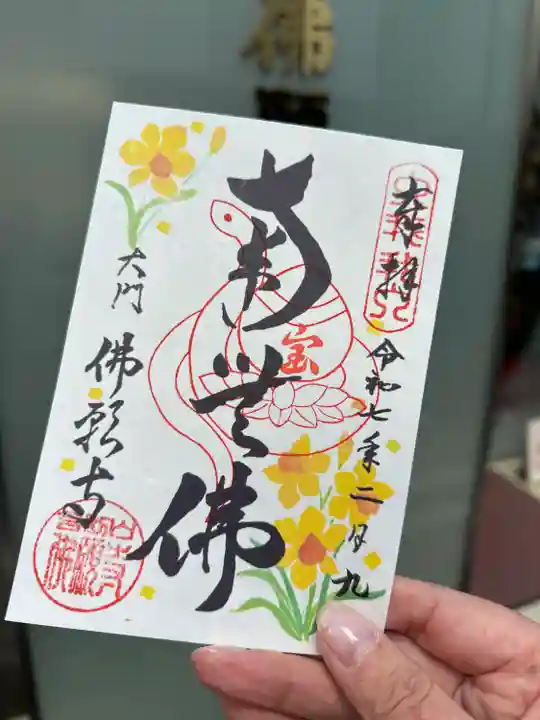 佛
奉拝
令和七年二月九
南無佛
宝
大門
佛願寺